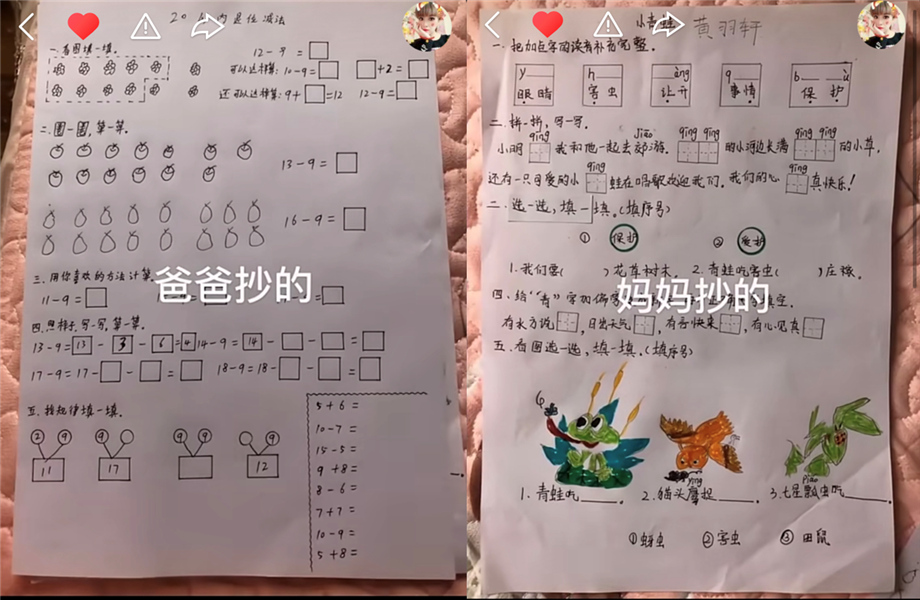 20以内退位减法
一、看图填一填。
12-9=□
可以这样算:10-9=□ □+2=□
还可以这样算:9+□=12 12-9=□
二、圈一圈,算一算。
13-9=□
16-9=□
三、用你喜欢的方法计算。
爸爸抄的
11-9=□
四、想样子,写一写,算一算。
13-9=13-3-6=4 14-9=14-□-□=□
17-9=17-□-□=□ 18-9=18-□-□=□
五、找规律填一填。
2 9 9 9 9 9
11 17 12
5+6=
10-7=
15-5=
9+8=
8-6=
7+7=
10-9=
5+8=
小青蛙 黄羽轩
一、把加点字的读音补充完整。
y h àng q b ù
眼睛 害虫 让开 事情 保护
二、拼一拼,写一写。
qíng jiāo qīng qīng qīng qīng
小明□我和他一起去郊游。□□的小河边长满□□的小草,
qīng qíng
还有一只可爱的小□蛙在唱歌欢迎我们。我们的心□真快乐!
二、选一选,填一填。(填序号)
① 保护 ② 爱护
1.我们要( )花草树木。 2.青蛙吃害虫( )庄稼。
妈妈抄的
四、给“青”字加偏旁
填空。
有水方说□,日出天气□,有言快来□,有心见真□
五、看图选一选,填一填。(填序号)
yīng piáo
1.青蛙吃____。 2.猫头鹰捉____。 3.七星瓢虫吃____。
①蚜虫 ②害虫 ③田鼠